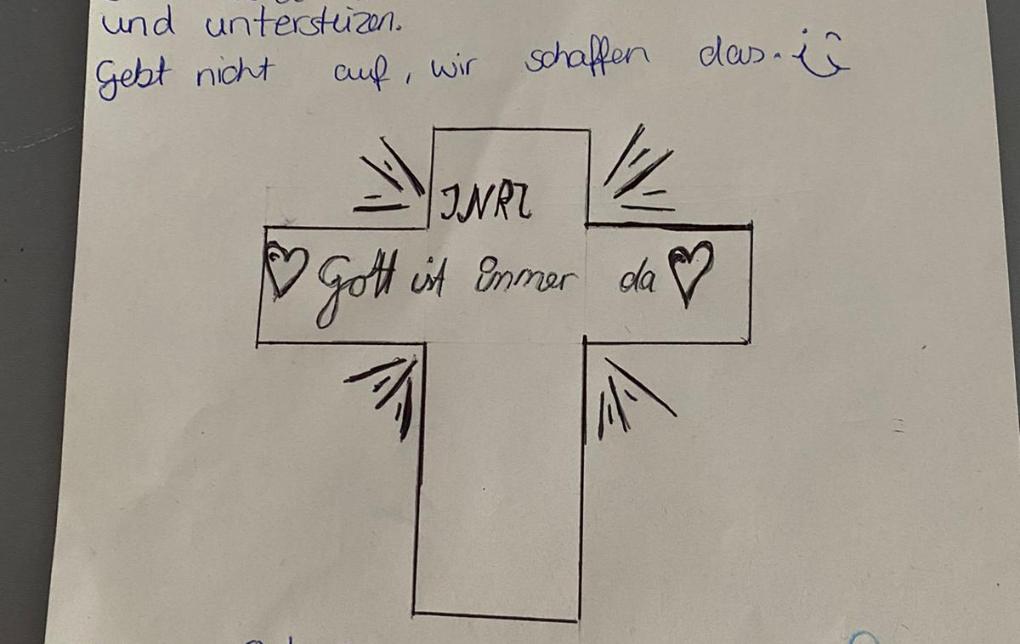 und unterstüzen.
Gebt nicht auf, wir schaffen das.
INRI
Gott ist immer da